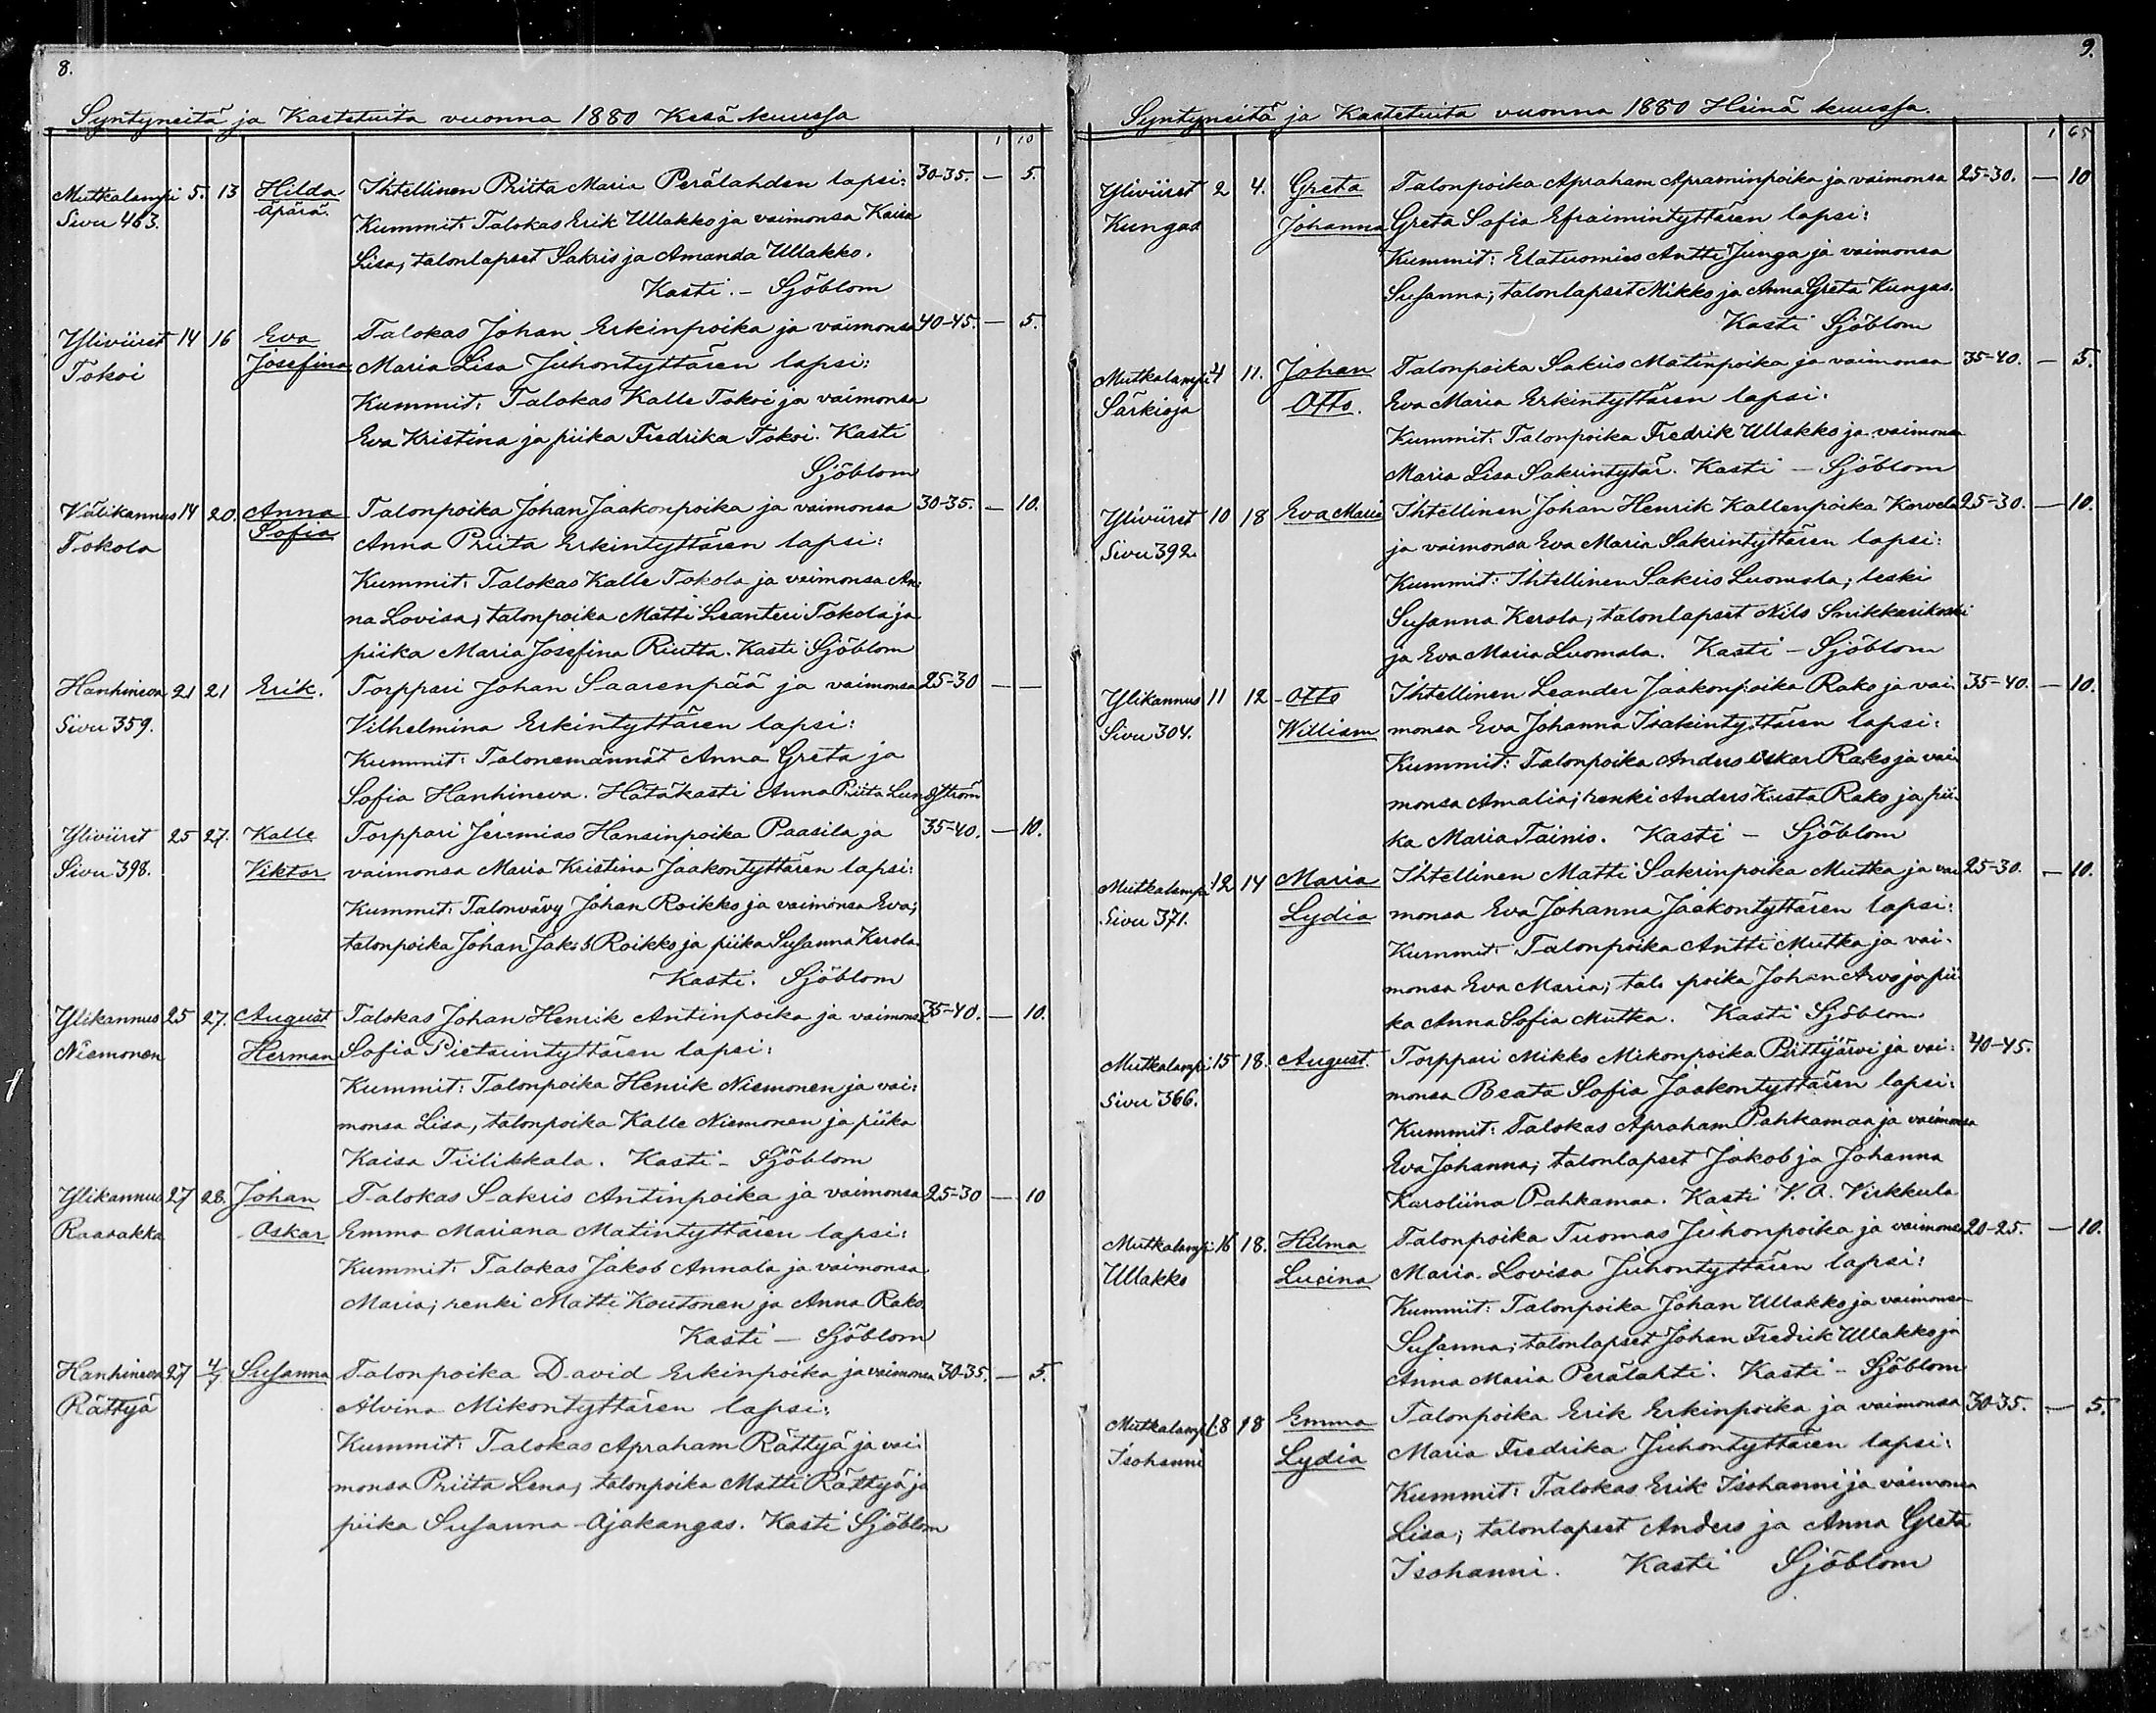 8.
Syntyneitä ja Kastetuita vuonna 1880 Kesä kuussa
1 10
Mutkalampi 5. 13 Hilda Ihtellinen Priita Maria Perälahden lapsi: 30-35. — 5.
Sivu 463. äpärä. Kummit: Talokas Erik Ullakko ja vaimonsa Kaisa
Lisa, talonlapset Sakris ja Amanda Ullakko.
Kasti. – Sjöblom
Yliviiret 14 16 Eva Talokas Johan Erkinpoika ja vaimonsa 40-45. — 5.
Tokoi Josefina Maria Lisa Juhontyttären lapsi:
Kummit: Talokas Kalle Tokoi ja vaimonsa
Eva Kristina ja piika Fredrika Tokoi. Kasti
Sjöblom
Välikannus 14 20. Anna Talonpoika Johan Jaakonpoika ja vaimonsa 30-35. — 10.
Tokola Sofia Anna Priita Erkintyttären lapsi:
Kummit: Talokas Kalle Tokola ja vaimonsa An-
na Lovisa, talonpoika Matti Leanteri Tokola ja
piika Maria Josefina Riutta. Kasti Sjöblom
Hanhineva 21 21 Erik. Torppari Johan Saarenpää ja vaimonsa 25-30 — —
Sivu 359. Vilhelmina Erkintyttären lapsi:
Kummit: Talonemännät Anna Greta ja
Sofia Hanhineva. Hätäkasti Anna Priita Lundström
Yliviiret 25 27. Kalle Torppari Jeremias Hansinpoika Paasila ja 35-40. — 10.
Sivu 398. Viktor vaimonsa Maria Kristina Jaakontyttären lapsi:
Kummit: Talonvävy Johan Roikko ja vaimonsa Eva;
talonpoika Johan Jakob Roikko ja piika Susanna Kerola.
Kasti. Sjöblom
Ylikannus 25 27. August Talokas Johan Henrik Antinpoika ja vaimonsa 35-40. — 10.
Niemonen Herman Sofia Pietarintyttären lapsi:
Kummit: Talonpoika Henrik Niemonen ja vai-
monsa Lisa, talonpoika Kalle Niemonen ja piika
Kaisa Tiilikkala. Kasti – Sjöblom
Ylikannus 27 28. Johan Talokas Sakris Antinpoika ja vaimonsa 25-30 — 10
Raasakka Oskar Emma Mariana Matintyttären lapsi:
Kummit: Talokas Jakob Annala ja vaimonsa
Maria; renki Matti Koutonen ja Anna Rako.
Kasti – Sjöblom
Hanhineva 27 4/7 Susanna Talonpoika David Erkinpoika ja vaimonsa 30-35. — 5.
Rättyä Alvina Mikontyttären lapsi:
Kummit: Talokas Apraham Rättyä ja vai-
monsa Priita Lena, talonpoika Matti Rättyä ja
piika Susanna Ojakangas. Kasti Sjöblom
9.
Syntyneitä ja Kastetuita vuonna 1880 Heinä kuussa.
1 65
Yliviiret 2 4. Greta Talonpoika Apraham Apraminpoika ja vaimonsa 25-30. — 10
Kungas Johanna Greta Sofia Efraimintyttären lapsi:
Kummit: Elatusmies Antti Junga ja vaimonsa
Susanna; talonlapset Mikko ja Anna Greta Kungas.
Kasti Sjöblom
Mutkalampi 4 11. Johan Talonpoika Sakris Matinpoika ja vaimonsa 35-40. — 5.
Särkioja Otto. Eva Maria Erkintyttären lapsi:
Kummit: Talonpoika Fredrik Ullakko ja vaimonsa
Maria Lisa Sakrintytär. Kasti – Sjöblom
Yliviiret 10 18 Eva Maria Ihtellinen Johan Henrik Kallenpoika Korvela 25-30. — 10.
Sivu 392. ja vaimonsa Eva Maria Sakrintyttären lapsi:
Kummit: Ihtellinen Sakris Luomala; leski
Susanna Kerola; talonlapset Nils Snikkarikoski
ja Eva Maria Luomala. Kasti – Sjöblom
Ylikannus 11 12 Otto Ihtellinen Leander Jaakonpoika Rako ja vai- 35-40. — 10.
Sivu 304. William monsa Eva Johanna Isakintyttären lapsi:
Kummit: Talonpoika Anders Oskar Rako ja vai-
monsa Amalia; renki Anders Kusta Rako ja pii-
ka Maria Tainio. Kasti – Sjöblom
Mutkalampi 12 14 Maria Ihtellinen Matti Sakrinpoika Mutka ja vai- 25-30. — 10.
Sivu 371. Lydia monsa Eva Johanna Jaakontyttären lapsi:
Kummit: Talonpoika Antti Mutka ja vai-
monsa Eva Maria; talo poika Johan Arvo ja pii-
ka Anna Sofia Mutka. Kasti Sjöblom
Mutkalampi 15 18. August. Torppari Mikko Mikonpoika Pirttijärvi ja vai- 40-45.
Sivu 366. monsa Beata Sofia Jaakontyttären lapsi:
Kummit: Talokas Apraham Pahkamaa ja vaimonsa
Eva Johanna; talonlapset Jakob ja Johanna
Karoliina Pahkamaa. Kasti V. A. Virkkula
Mutkalampi 16 18. Hilma Talonpoika Tuomas Juhonpoika ja vaimonsa 20-25. — 10.
Ullakko Lucina Maria Lovisa Juhontyttären lapsi:
Kummit: Talonpoika Johan Ullakko ja vaimonsa
Susanna; talonlapset Johan Fredrik Ullakko ja
Anna Maria Perälahti. Kasti – Sjöblom
Mutkalampi 18 18 Emma Talonpoika Erik Erkinpoika ja vaimonsa 30-35. — 5.
Isohanni Lydia Maria Fredrika Juhontyttären lapsi:
Kummit: Talokas Erik Isohanni ja vaimonsa
Lisa; talonlapset Anders ja Anna Greta
Isohanni. Kasti Sjöblom